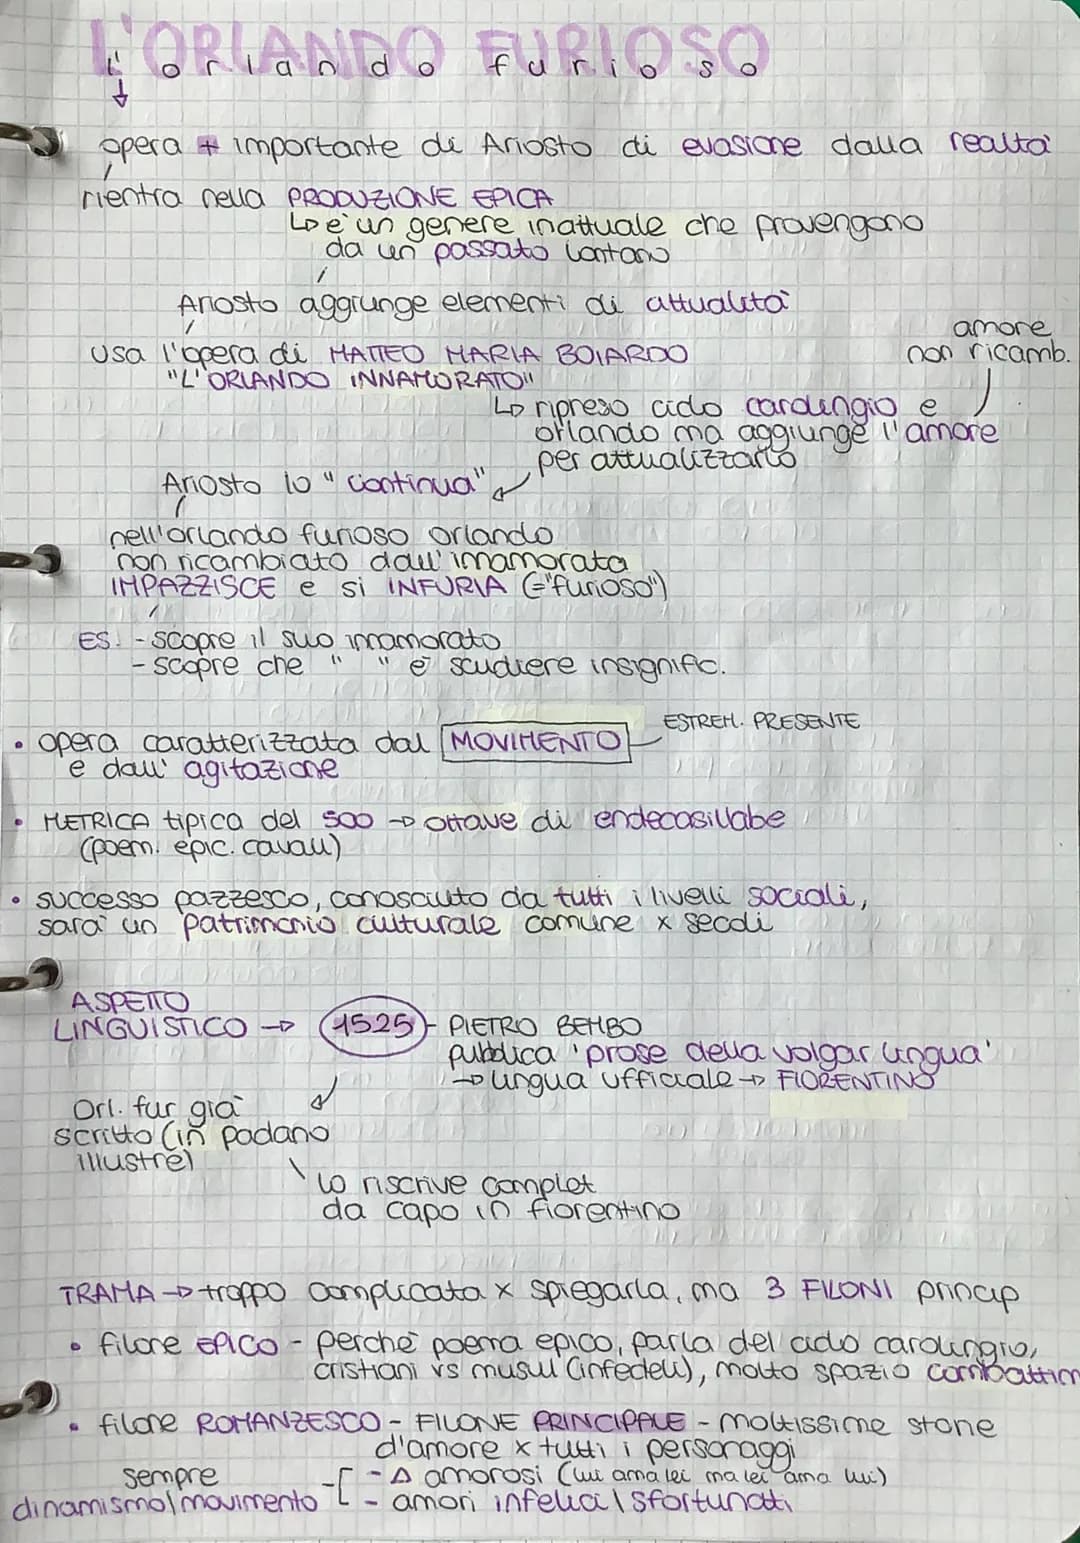 L'ORLANDO FURIOSO
L'orlando furioso
↓
opera + importante di Ariosto di evasione dalla realtà
rientra nella PRODUZIONE EPICA
↳ è un genere inattuale che provengono
da un passato lontano
Ariosto aggiunge elementi di attualità
amore
non ricamb.
usa l'opera di MATTEO MARIA BOIARDO
"L'ORLANDO INNAMORATO"
↳ ripreso ciclo carolingio e
orlando ma aggiunge l'amore
per attualizzarlo
Ariosto lo "continua"
nell'orlando furioso orlando
non ricambiato dall'innamorata
IMPAZZISCE e si INFURIA (="furioso")
ES. - scopre il suo innamorato
- scopre che " " è scudiere insignific.
• opera caratterizzata dal MOVIMENTO - ESTREM. PRESENTE
e dall'agitazione
• METRICA tipica del 500 → ottave di endecasillabe
(poem. epic. cavall)
• successo pazzesco, conosciuto da tutti i livelli sociali,
sarà un patrimonio culturale comune x secoli
ASPETTO
LINGUISTICO → 1525 - PIETRO BEMBO
pubblica 'prose della volgar lingua'
→ lingua ufficiale → FIORENTINO
Orl. fur già
scritto (in padano
illustre)
lo riscrive complet
da capo in fiorentino
TRAMA → troppo complicata x spiegarla, ma 3 FILONI princip
• filone EPICO - perché poema epico, parla del ciclo carolingio,
cristiani vs musul (infedeli), molto spazio combattim
• filone ROMANZESCO - FILONE PRINCIPALE - moltissime storie
d'amore x tutti i personaggi
sempre
dinamismo/movimento -[ - Δ amorosi (lui ama lei ma lei ama lui)
- amori infelici/sfortunati